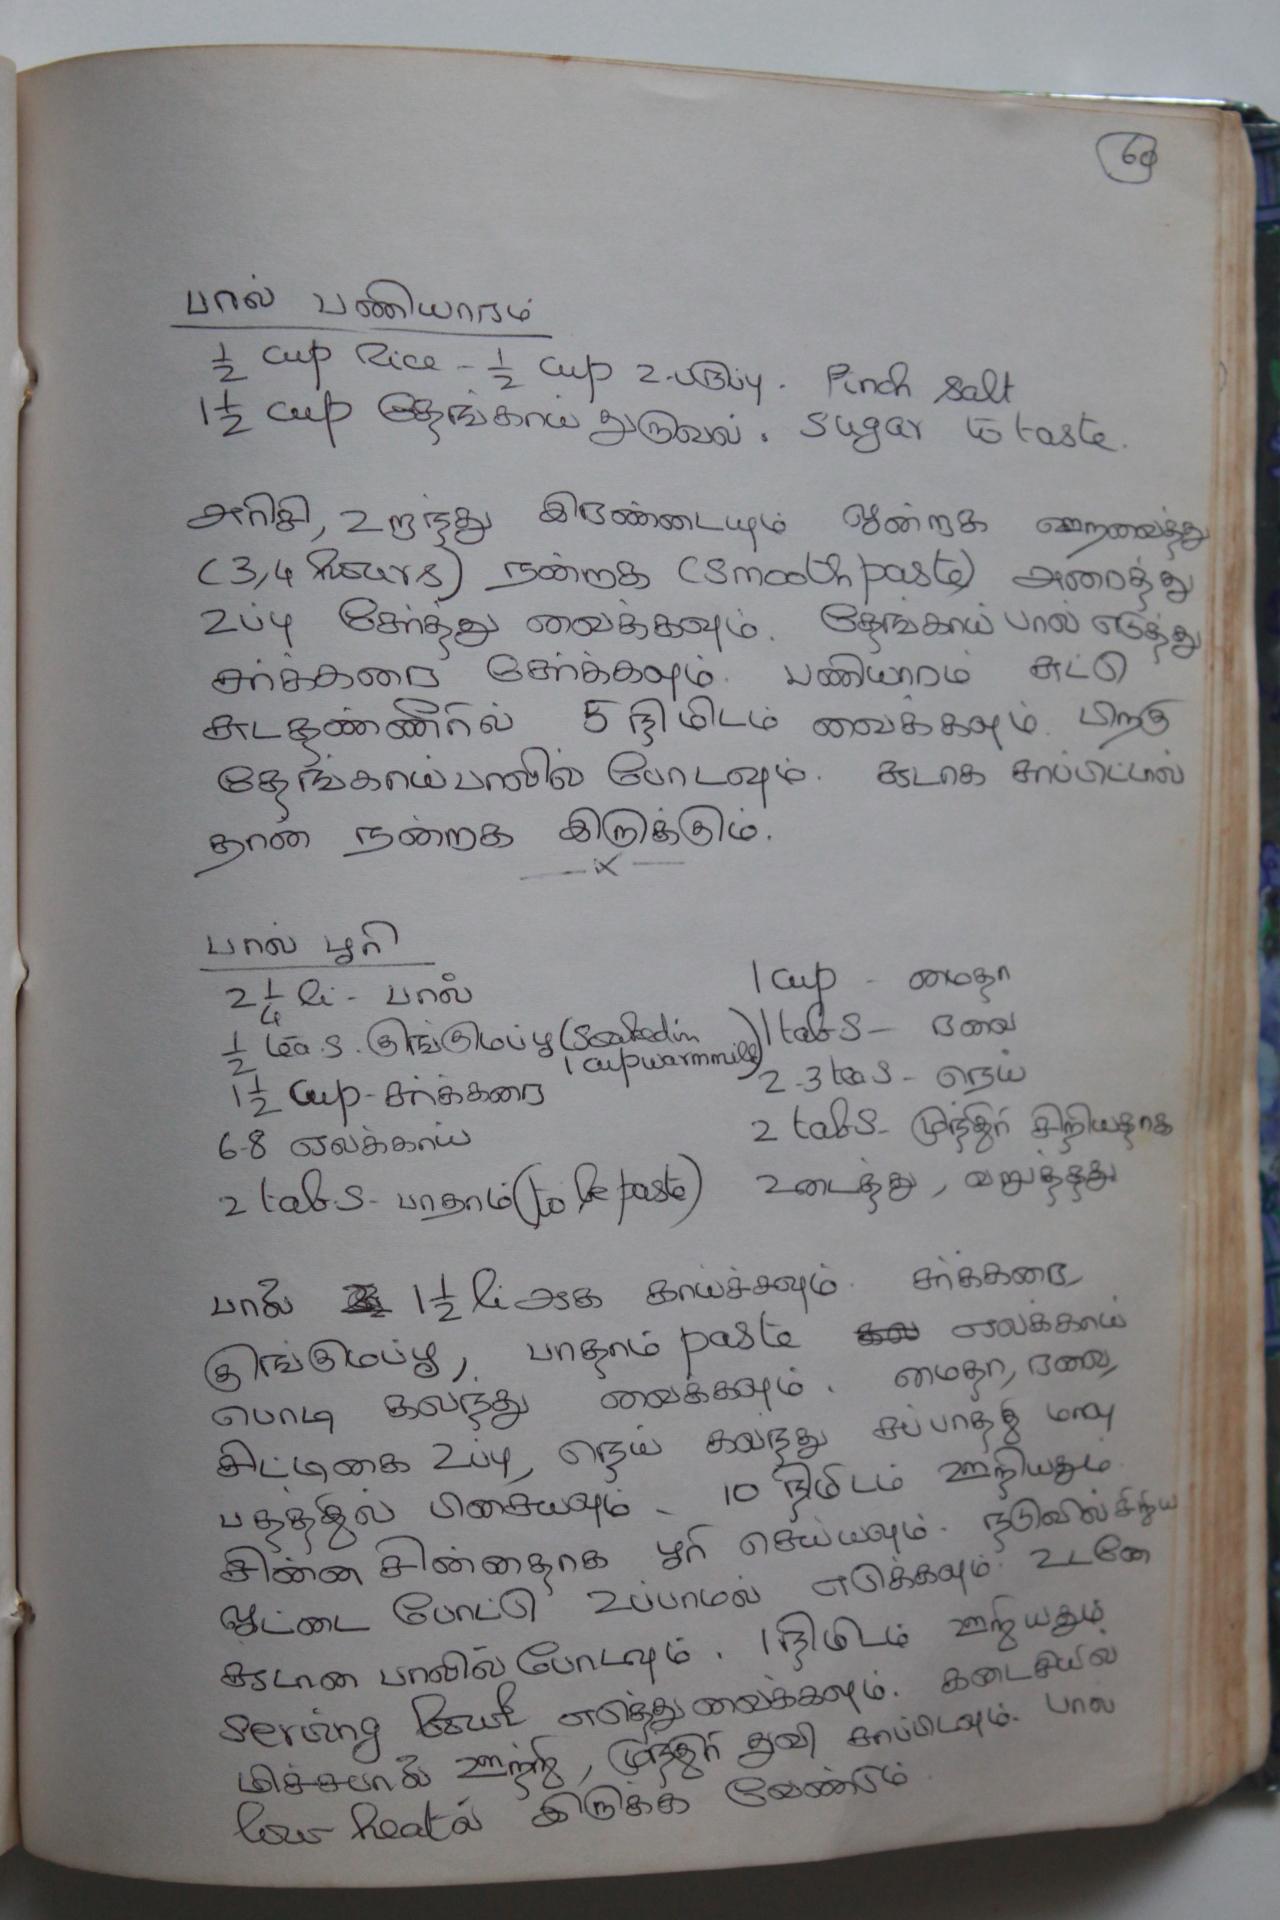 60
பால் பணியாரம்
1/2 cup Rice - 1/2 cup உ.பருப்பு. Pinch salt
1 1/2 cup தேங்காய் துருவல். Sugar to taste.
அரிசி, உளுந்து இரண்டையும் ஒன்றாக ஊறவைத்து
(3,4 hours) நன்றாக (Smooth paste) அரைத்து
உப்பு சேர்த்து வைக்கவும். தேங்காய் பால் எடுத்து
சர்க்கரை சேர்க்கவும். பணியாரம் சுட்டு
சுடதண்ணீரில் 5 நிமிடம் வைக்கவும். பிறகு
தேங்காய்பாலில் போடவும். சூடாக சாப்பிட்டால்
தான் நன்றாக இருக்கும்.
— x —
பால் பூரி
2 1/4 li - பால்
1/2 tea.s. குங்குமப்பூ (Soaked in
1 cup warm milk)
1 1/2 Cup - சர்க்கரை
6-8 ஏலக்காய்
2 tab.S - பாதாம் (to be paste)
1 cup - மைதா
1 tab.S - ரவை
2-3 tea.S - நெய்
2 tab.S - முந்திரி சிறியதாக
உடைத்து, வறுத்தது
பால் 1 1/2 li ஆக காய்ச்சவும். சர்க்கரை,
குங்குமப்பூ, பாதாம் paste ஏலக்காய்
பொடி கலந்து வைக்கவும். மைதா, ரவை,
சிட்டிகை உப்பு, நெய் கலந்து சப்பாத்தி மாவு
பதத்தில் பிசையவும். 10 நிமிடம் ஊறியதும்
சின்ன சின்னதாக பூரி செய்யவும். நடுவில் சிறிய
ஓட்டை போட்டு உப்பாமல் எடுக்கவும். உடனே
சூடான பாலில் போடவும். 1 நிமிடம் ஊறியதும்
Serving bowl எடுத்து வைக்கவும். கடைசியில்
மிச்சபால் ஊற்றி, முந்திரி தூவி சாப்பிடவும். பால்
low heatல் இருக்க வேண்டும்.